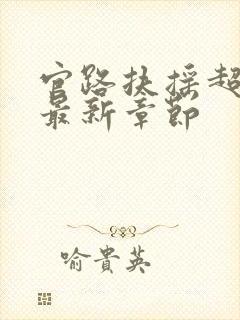 官路扶摇超
最新章節
喻貴英